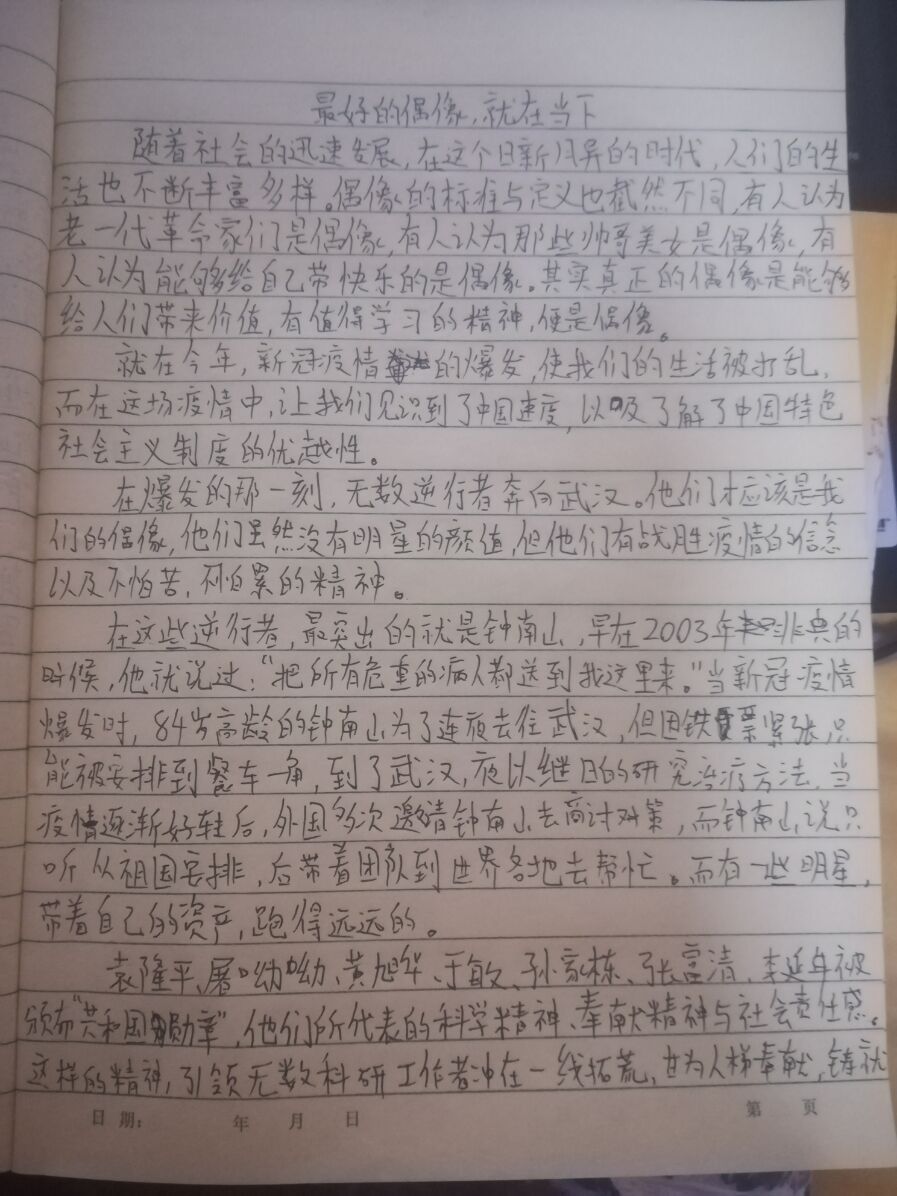 最好的偶像,就在当下
随着社会的迅速发展,在这个日新月异的时代,人们的生
活也不断丰富多样。偶像的标准与定义也截然不同,有人认为
老一代革命家们是偶像,有人认为那些帅哥美女是偶像,有
人认为能够给自己带快乐的是偶像。其实真正的偶像是能够
给人们带来价值,有值得学习的精神,便是偶像。
就在今年,新冠疫情的爆发,使我们的生活被打乱,
而在这场疫情中,让我们见识到了中国速度,以及了解了中国特色
社会主义制度的优越性。
在爆发的那一刻,无数逆行者奔向武汉。他们才应该是我
们的偶像,他们虽然没有明星的颜值,但他们有战胜疫情的信念
以及不怕苦,不怕累的精神。
在这些逆行者,最突出的就是钟南山,早在2003年非典的
时候,他就说过:“把所有危重的病人都送到我这里来。”当新冠疫情
爆发时,84岁高龄的钟南山为了连夜去往武汉,但因铁票紧张,只
能被安排到餐车一角,到了武汉,夜以继日的研究治疗方法,当
疫情逐渐好转后,外国多次邀请钟南山去商讨对策,而钟南山说只
听从祖国安排,后带着团队到世界各地去帮忙。而有一些明星,
带着自己的资产,跑得远远的。
袁隆平、屠呦呦、黄旭华、于敏、孙家栋、张富清、李延年被
颁布“共和国勋章”,他们所代表的科学精神、奉献精神与社会责任感。
这样的精神,引领无数科研工作者冲在一线拓荒,甘为人梯奉献,铸就
日期: 年 月 日
第 页